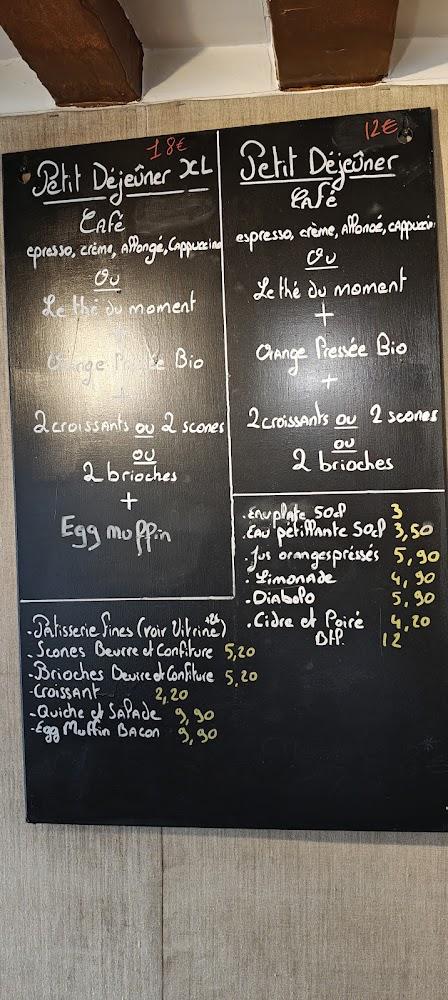 18€
Petit Déjeûner XL
Café
epresso, crème, Allongé, Cappuccino
Ou
Le thé du moment
+
Orange Pressée Bio
+
2 croissants ou 2 scones
ou
2 brioches
+
Egg muffin
12€
Petit Déjeûner
Café
espresso, crème, Allongé, cappuccin
Ou
Le thé du moment
+
Orange Pressée Bio
+
2 croissants ou 2 scones
ou
2 brioches
. Eau plate 50cl 3
. Eau pétillante 50cl 3,50
. Jus oranges pressés 5,90
. Limonade 4,90
. Diabolo 5,90
. Cidre et Poiré 4,20
Btl. 12
- Pâtisserie fines (voir Vitrine)
- Scones Beurre et Confiture 5,20
- Brioches Beurre et Confiture 5,20
- Croissant 2,20
- Quiche et Salade 9,90
- Egg Muffin Bacon 9,90